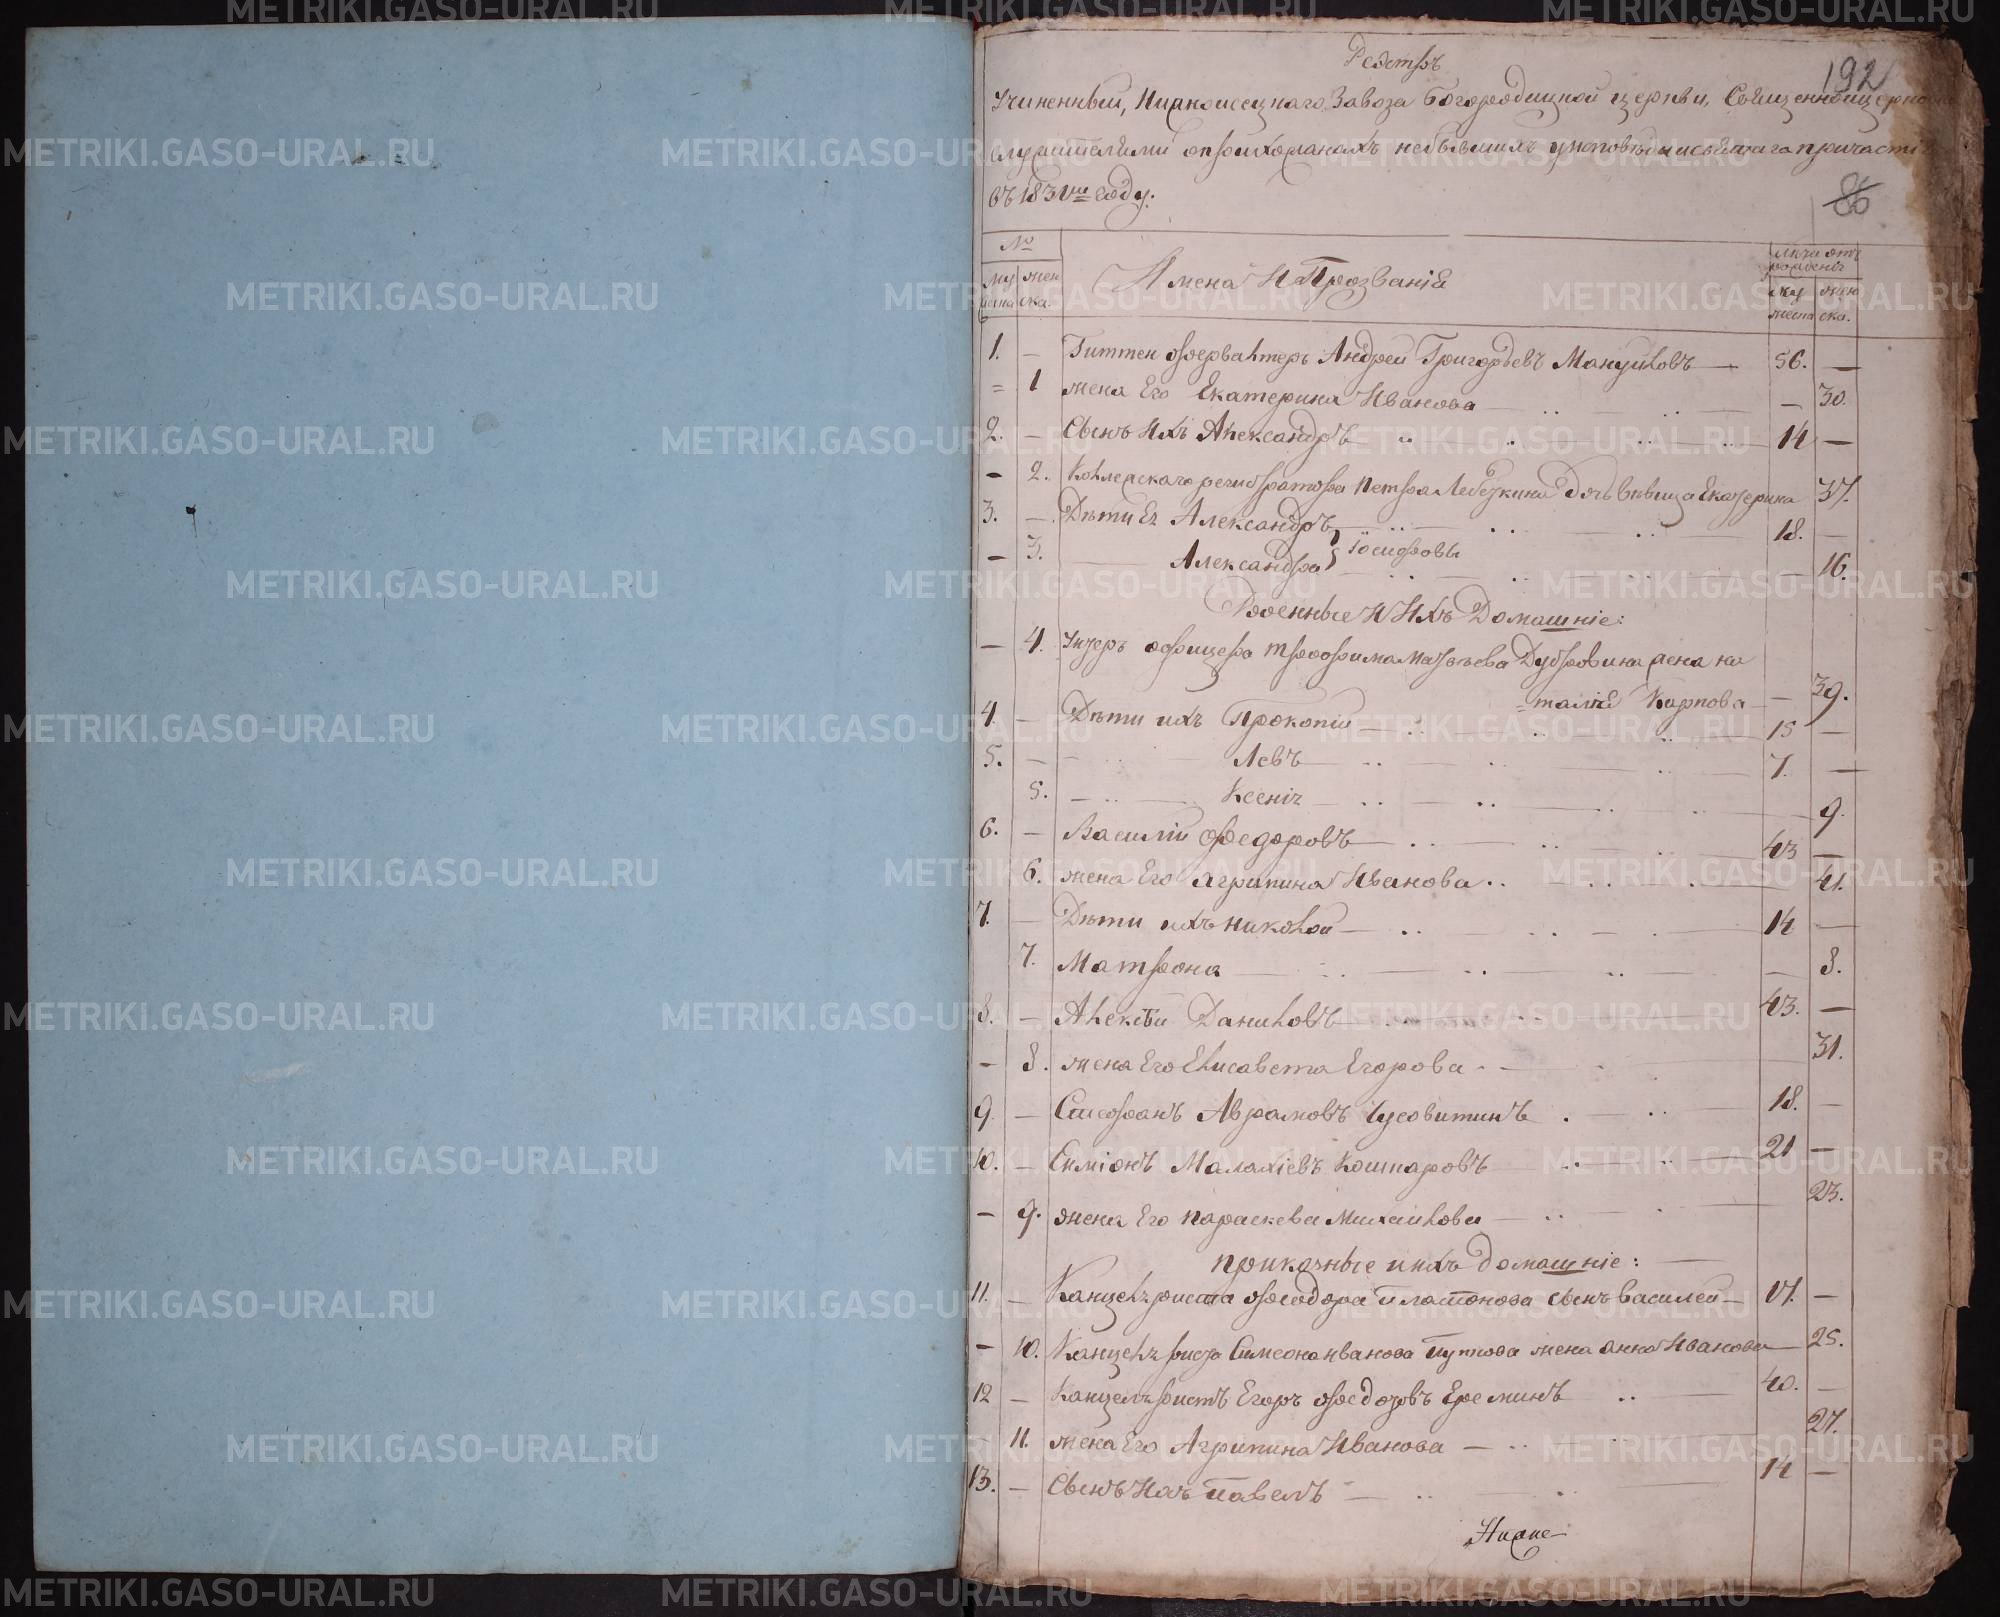 192
Реэстръ
Учиненный, Нижнеисецкаго Завода Богородицкой церкви, Священноцерковно
служителями о прихожанахъ небывшихъ у исповѣди и святаго причастія
въ 1831мъ году.
86
№ Имена И Прозванія лѣта отъ рожденія
му жеска жен ска. му жеска жен ска.
1. — Гиттен фервалтеръ Андрей Григорьевъ Мануиловъ — 56. —
= 1 жена Его Екатерина Иванова — 30.
2. — Сынъ Ихъ Александръ 14 —
— 2. Коллежскаго регистратора Петра Лебедкина дочь вдовица Екатерина 37.
3. — Дѣти Ея Александръ 18. —
Іосифовы
— 3. Александра — 16.
Военные И Ихъ Домашніе:
— 4. Унтеръ офицера Трофима Матвѣева Дубровина жена На
=талія Карпова — 39.
4. — Дѣти ихъ Прокопій 15 —
5. — Левъ 7. —
5. Ксенія 9.
6. — Василій Федоровъ 43 —
6. жена Его Агрипина Иванова 41.
7. — Дѣти ихъ Николай 14 —
7. Матрона — 8.
8. — Алексѣй Даниловъ 43. —
— 8. жена Его Елисавета Егорова 31.
9. — Стефанъ Аврамовъ Чусовитинъ 18. —
10. — Симіонъ Малахіевъ Кошкаровъ 21 —
— 9. жена Его Параскева Михаилова 23.
Приказные и ихъ домашніе:
11. — Канцеляриста Феодора Платонова сынъ Василей 17. —
— 10. Канцеляриста Симеона Иванова жена Анна Иванова 25.
12 — Канцеляристъ Егоръ Федоровъ Ереминъ 40. —
— 11. жена Его Агрипина Иванова 27.
13. — Сынъ Ихъ Павелъ 14 —
METRIKI.GASO-URAL.RU